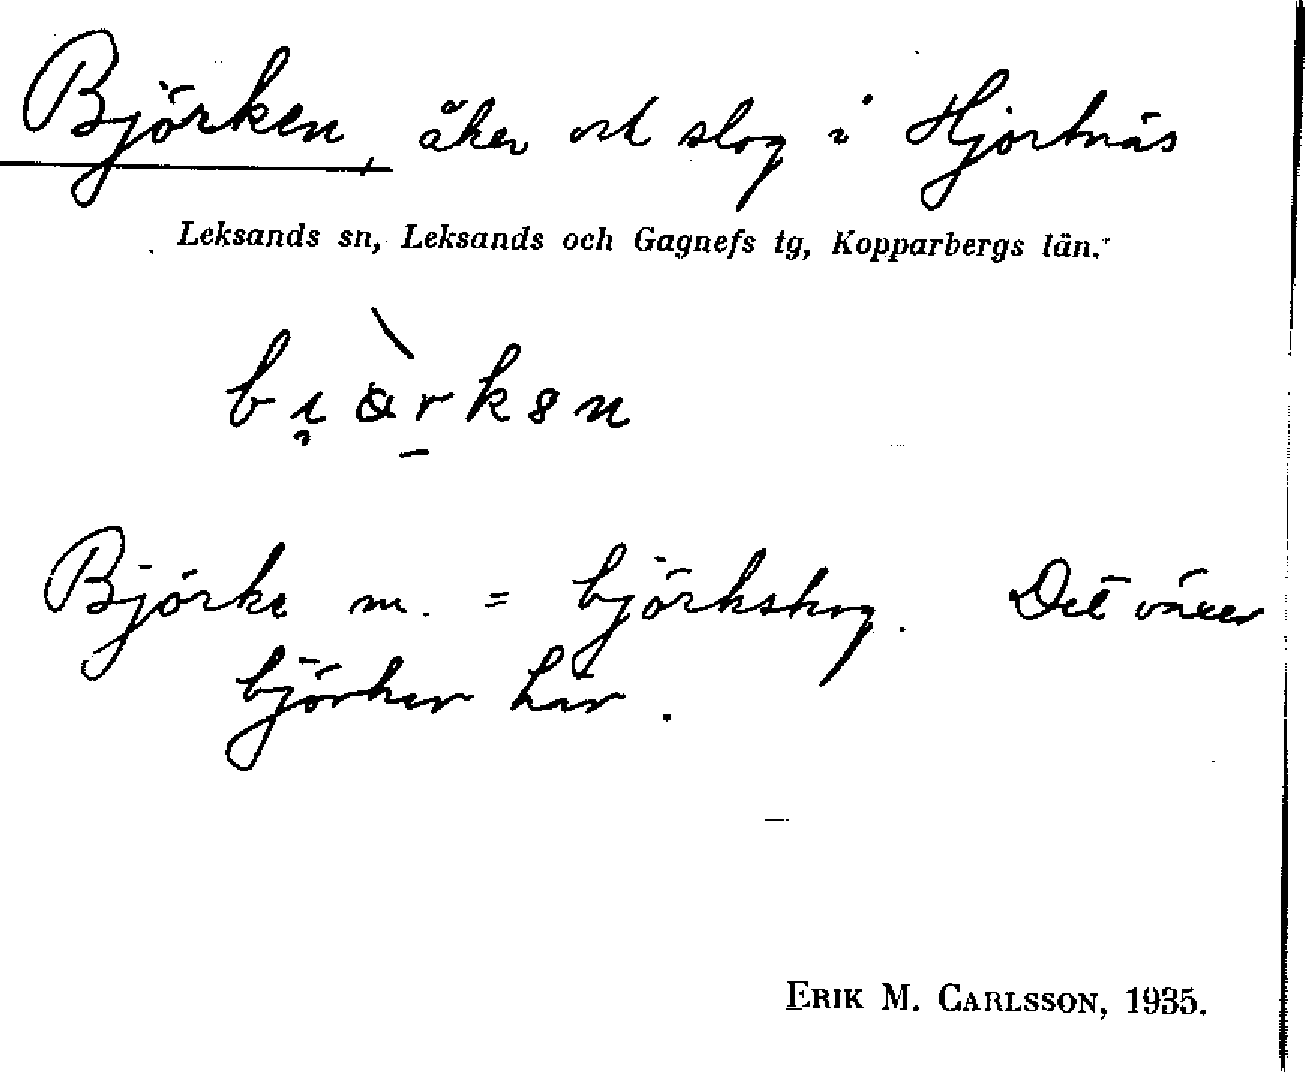 Björken, åker och slog i Hjortnäs
Leksands sn, Leksands och Gagnefs tg, Kopparbergs län.
Björke m. = björkskog. Det växer
björkar här.
ERIK M. CARLSSON, 1935.